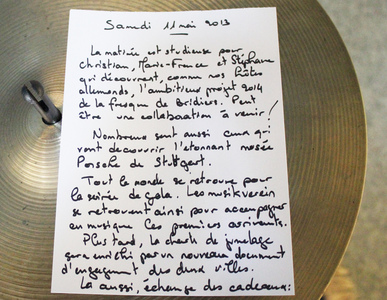 Samedi 11 mai 2013
La matinée est studieuse pour
Christian, Marie-France et Stéphane
qui découvrent, comme nos hôtes
allemands, l'ambitieux projet 2014
de la fresque de Bridiers. Peut
être une collaboration à venir!
Nombreux sont aussi ceux qui
vont découvrir l'étonnant musée
Porsche de Stuttgart.
Tout le monde se retrouve pour
la soirée de gala. Les musikverein
se retrouvent ainsi pour accompagner
en musique les premiers arrivants.
Plus tard, la charte de jumelage
sera enrichi par un nouveau document
d'engagement des deux villes.
La aussi, échange des cadeaux: